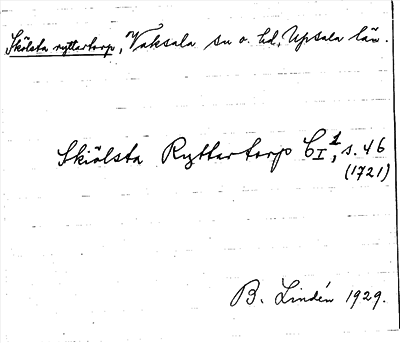 Skölsta ryttartorp, Vaksala sn o. hd, Upsala län.
Skiölsta Ryttartorp C I 1, s. 46
(1721)
B. Lindén 1929.